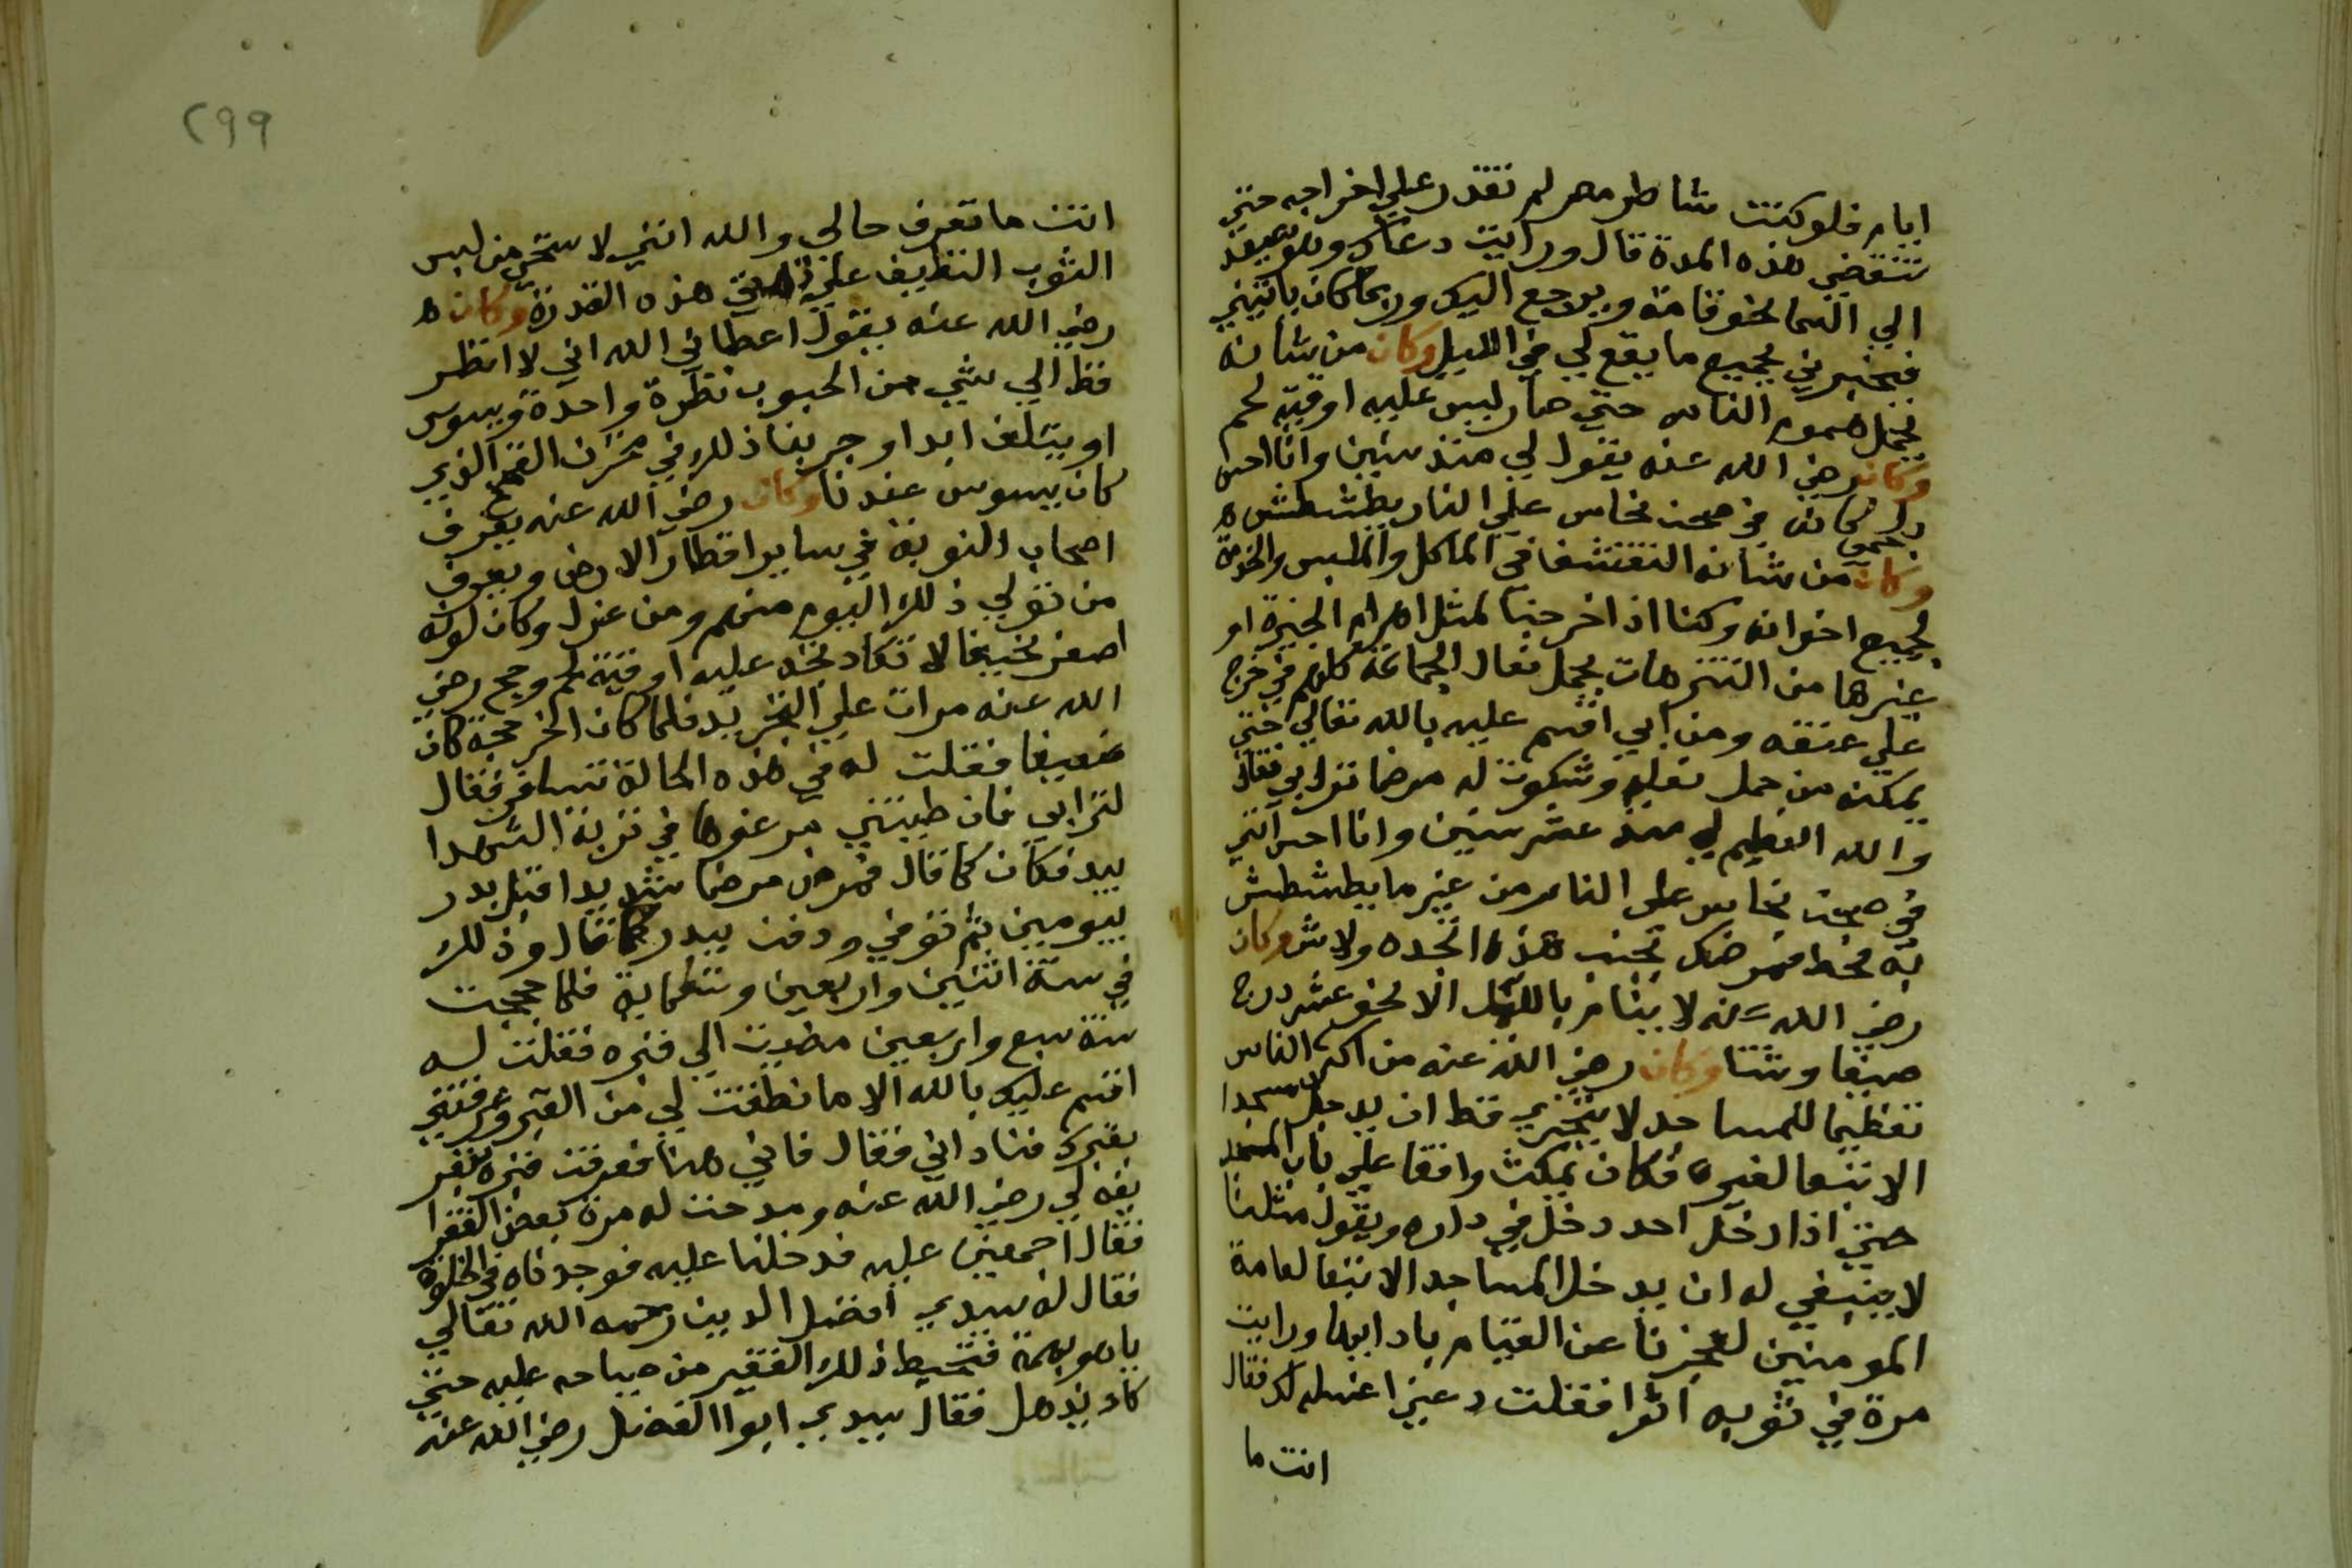 ايام فلوكنت شاطر مصر لم تقدر علي اخراجه حتي
تنقضي هذه المدة قال ورايت دعاك وهو يصعد
الي السما نحو قامة ويرجع اليك وربما كان ياتيني
فيخبرني بجميع ما يقع لي في الليل وكان من شانه
تحمل هموم الناس حتي صار ليس عليه اوقية لحم
وكان رضي الله عنه يقول لي منذ سنين وانا احس
بلحمي كانه في صحن نحاس علي النار يطشطش ه
وكان من شانه التقشف في الماكل والملبس والخدمة
لجميع اخوانه وكنا اذا خرجنا لمثل اهرام الجيزة او
غيرها من التنزهات يحمل نعال الجماعة كلهم في خرج
علي عنقه ومن ابي اقسم عليه بالله تعالي حتي
يمكنه من حمل نعله وشكوت له مرضا نزل بي فقال
والله العظيم لي منذ عشر سنين وانا احس انني
في صحن نحاس علي النار من غير ما يطشطش
به فحط مرضك بجنب هذه اتجده ولاش وكان
رضي الله عنه لا ينام بالليل الا نحو عشر درج
صيفا وشتا وكان رضي الله عنه من اكثر الناس
تعظيما للمساجد لا يتجرى قط ان يدخل مسجدا
الا تبعا لغيره فكان يمكث واقفا علي باب المسجد
حتي اذا دخل احد دخل في داره ويقول مثلنا
لا ينبغي له ان يدخل المساجد الا تبعا لعامة
المومنين لعجزنا عن القيام بادابها ورايت
مرة في ثوبه اثرا فقلت دعني اغسله لك فقال
انت ما
٢٩٩
انت ما تعرف حالي والله انني لاستحي من لبس
الثوب النظيف علي ذاتي هذه القذرة وكان ه
رضي الله عنه يقول اعطاني الله اني لا انظر
قط الي شي من الحبوب نظرة واحدة ويسوس
او يتلف ابدا وجربنا ذلك في مخزن القمح الذي
كان يسوس عندنا وكان رضي الله عنه يعرف
اصحاب النوبة في ساير اقطار الارض ويعرف
من تولي ذلك اليوم منهم ومن عزل وكان لونه
اصفر نحيفا لا تكاد تجد عليه اوقية لحم وحج رضي
الله عنه مرات علي التجريد فلما كان اخر حجة كان
ضعيفا فقلت له في هذه الحالة تسافر فقال
لترابي فان طينتي مرغوها في تربة الشهدا
ببدر فكان كما قال فمرض مرضا شديدا قبل بدر
بيومين ثم توفي ودفن ببدر كما قال وذلك
في سنة اثنين واربعين وتسعماية فلما حججت
سنة سبع واربعين مضيت الي قبره فقلت له
اقسم عليك بالله الا ما نطقت لي من القبر وعرفتني
بقبرك فناداني فقال فاني هنا فعرفت قبره بتعر
يفه لي رضي الله عنه ومدحت له مرة بعض الفقرا
فقال اجمعني عليه فدخلنا عليه فوجدناه في الخلوة
فقال له سيدي افضل الدين رحمه الله تعالي
ياهو بهمة فتخبط ذلك الفقير من صياحه عليه حتي
كاد يذهل فقال سيدي ابوا الفضل رضي الله عنه